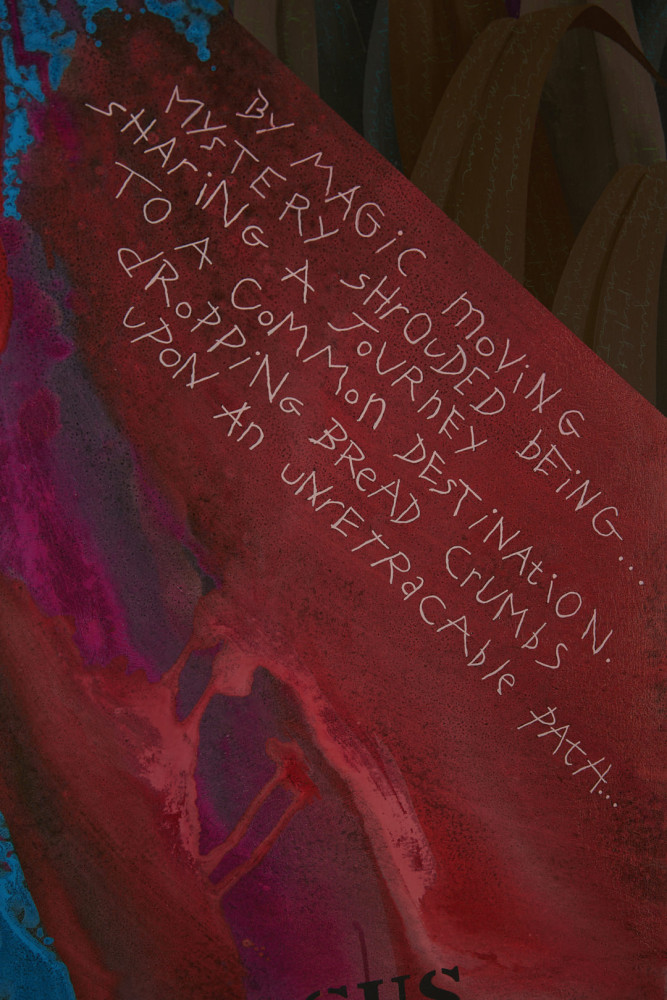 BY MAGiC MOViNG
MYSTERY SHROUDED bEiNG...
SHAriNG A JOURnEY
TO A COMMon DESTiNAtiON.
dRoPPiNG BReAD CrUMbS
UPON An UNrETRaCAble PAtH...